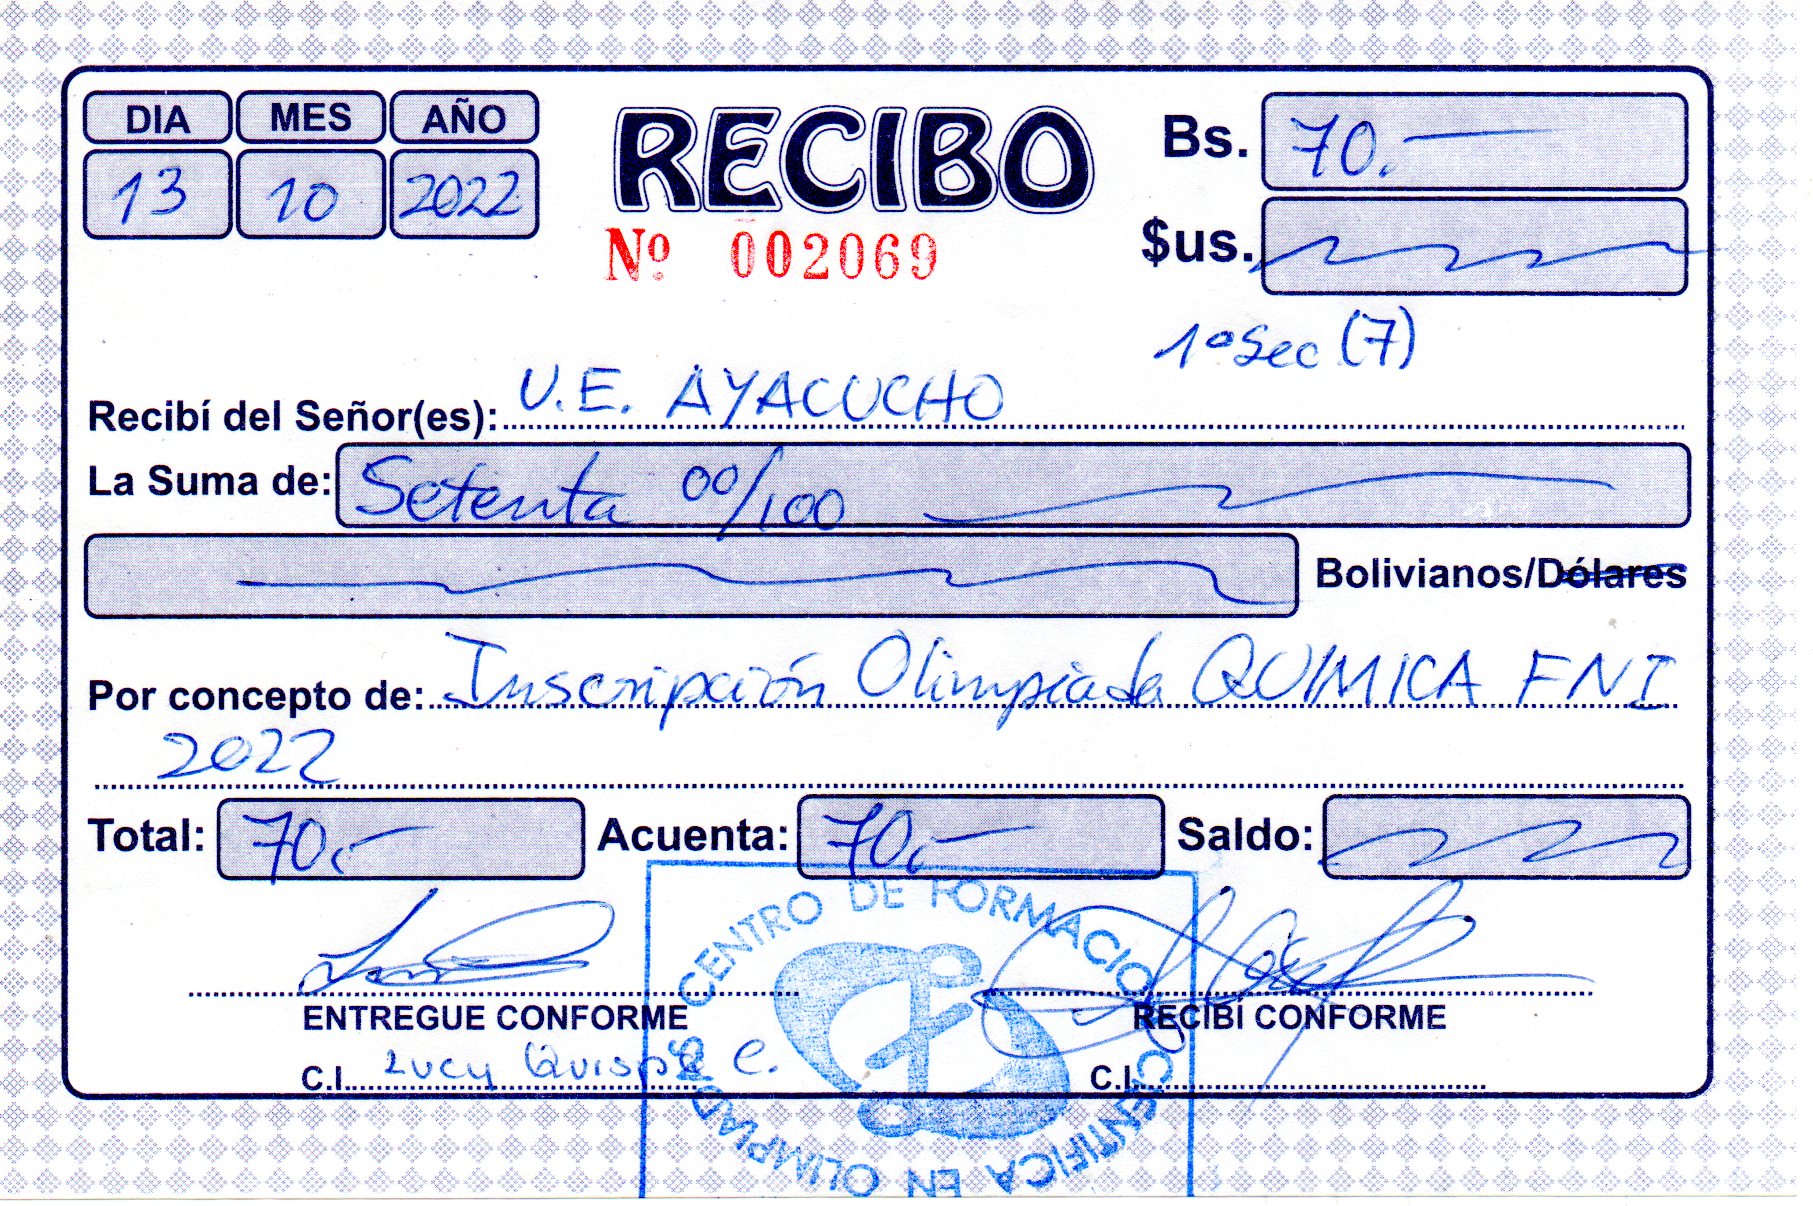 DIA MES AÑO
13 10 2022
RECIBO
Nº 002069
Bs. 70.-
$us.
1º Sec (7)
Recibí del Señor(es): U.E. AYACUCHO
La Suma de: Setenta 00/100
Bolivianos/Dólares
Por concepto de: Inscripción Olimpiada QUIMICA FNI
2022
Total: 70.- Acuenta: 70.- Saldo:
ENTREGUE CONFORME RECIBÍ CONFORME
C.I. Lucy Quispe C. C.I.
CENTRO DE FORMACION CIENTIFICA EN OLIMPIADAS